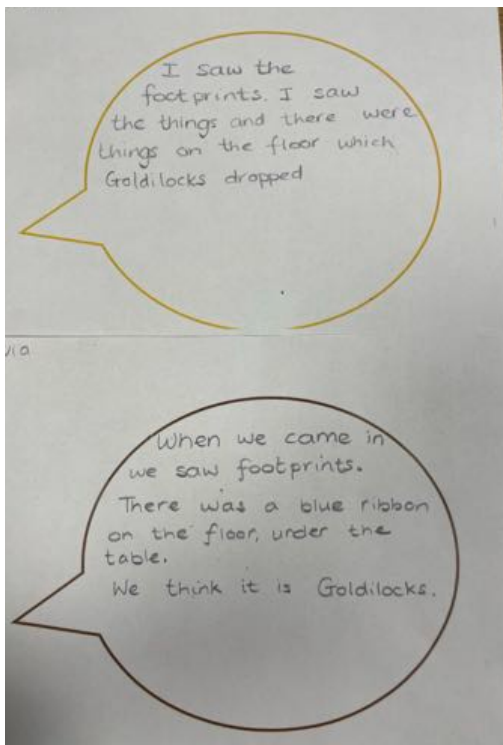 I saw the
footprints. I saw
the things and there were
things on the floor which
Goldilocks dropped
via
When we came in
we saw footprints.
There was a blue ribbon
on the floor, under the
table.
We think it is Goldilocks.